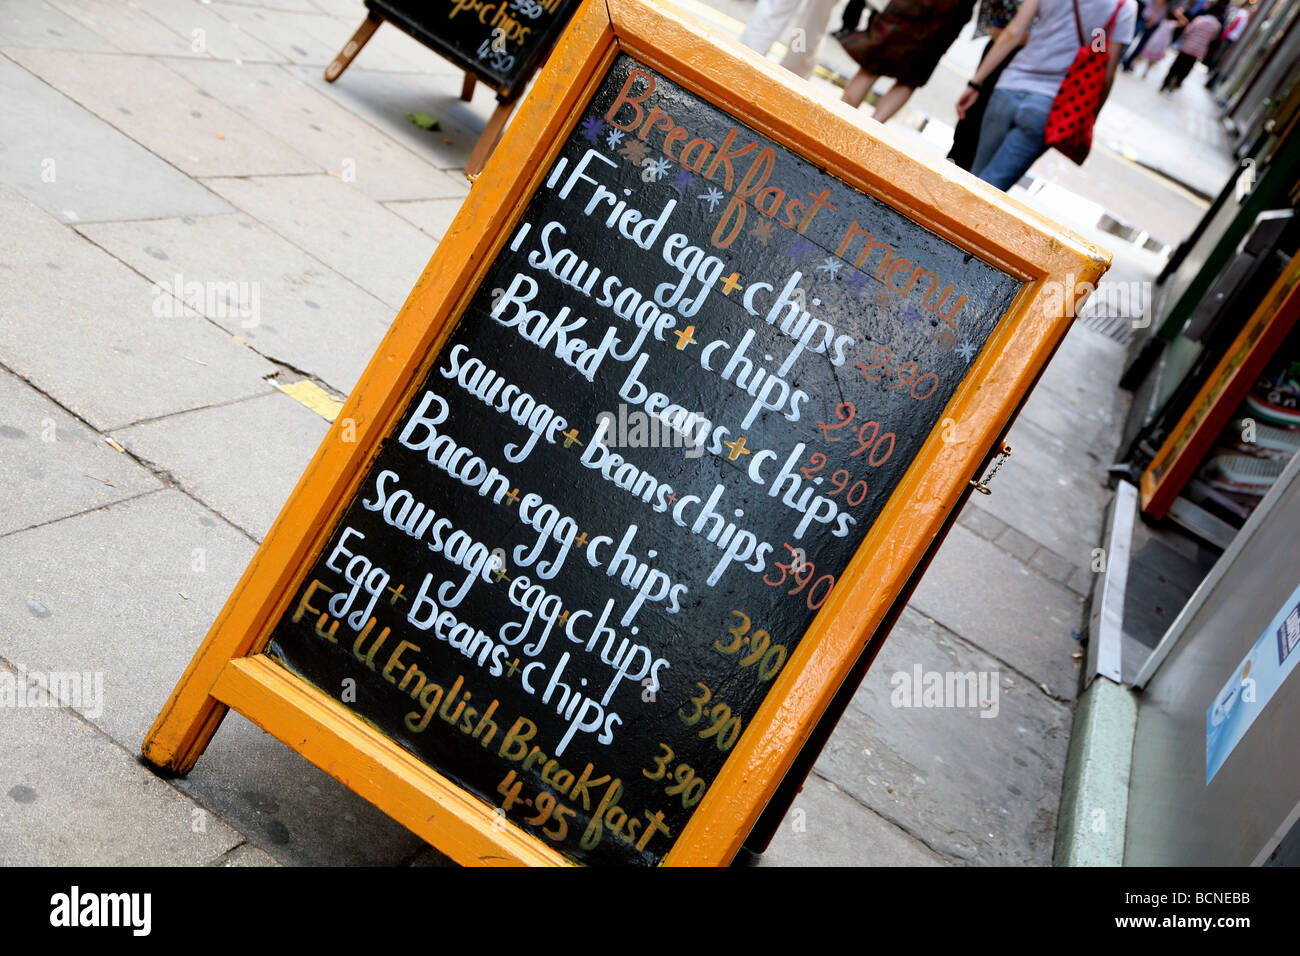 3.50
p+chips
4.50
Breakfast menu
1 Fried egg + chips 2.90
1 Sausage + chips 2.90
Baked beans + chips 2.90
sausage + beans + chips 3.90
Bacon + egg + chips 3.90
sausage + egg + chips 3.90
Egg + beans + chips 3.90
Full English Breakfast
4.95
alamy
Image ID: BCNEBB
www.alamy.com